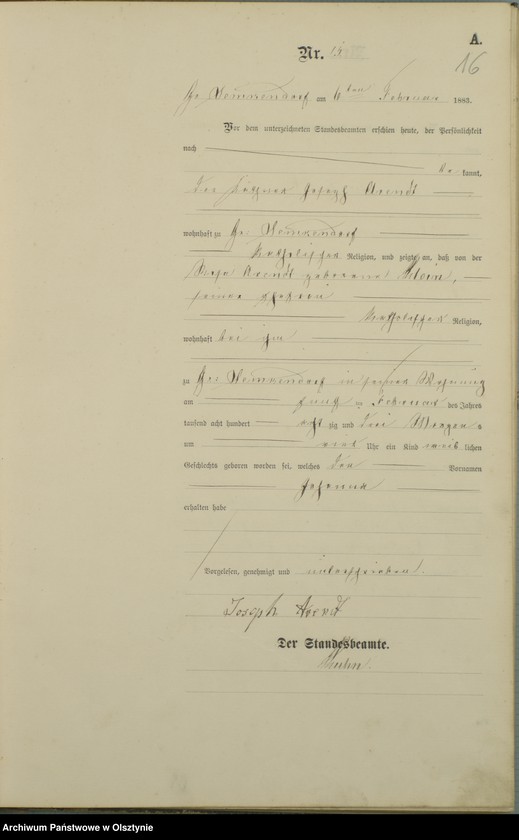 A.
Nr. 15
16
am 6ten Februar 1883.
Vor dem unterzeichneten Standesbeamten erschien heute, der Persönlichkeit
nach
be kannt,
der Joseph Arendt
wohnhaft zu Gr.
katholischer Religion, und zeigte an, daß von der
Arendt geborene Klein,
seiner Ehefrau
katholischer Religion,
wohnhaft bei ihm
zu Gr. in seiner Wohnung
am fünf ten Februar des Jahres
tausend acht hundert acht zig und drei Morgens
um Uhr ein Kind weib lichen
Geschlechts geboren worden sei, welches den Vornamen
Johanna
erhalten habe
Vorgelesen, genehmigt und unterschrieben.
Joseph Arendt
Der Standesbeamte.
Archiwum Państwowe w Olsztynie